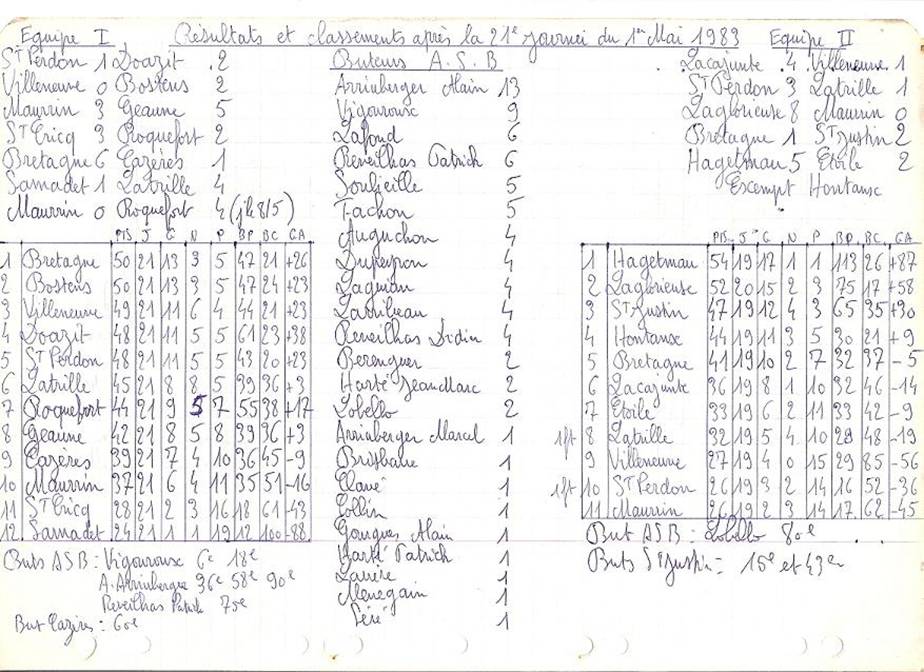 Equipe I
Résultats et classements après la 21e journée du 1er Mai 1983
Equipe II
St Perdon 1 Doazit 2
Villeneuve 0 Bostens 2
Maurrin 3 Geaune 5
St Ericq 3 Roquefort 2
Bretagne 6 Cazères 1
Samadet 1 Latrille 4
Maurrin 0 Roquefort 4 (jle 8/5)
Buteurs A.S.B
Arrinberger Alain 13
Vigouroux 9
Lafond 6
Reveilhas Patrick 6
Soubieille 5
Tachon 5
Auguchon 4
Dupeyron 4
Lagnian 4
Lambeau 4
Reveilhas Didin 4
Berenguer 2
Harté Jean Marc 2
Lobello 2
Arrinberger Marcel 1
Brisbane 1
Clavé 1
Collin 1
Gougues Alain 1
Harté Patrich 1
Larrère 1
Menegain 1
Séré 1
Lacajunte 4 Villeneuve 1
St Perdon 3 Latrille 1
Laglorieuse 8 Maurrin 0
Bretagne 1 St Justin 2
Hagetmau 5 Etoile 2
Exempt Hontanx
PTS J G N P BP BC GA
1 Bretagne 50 21 13 3 5 47 21 +26
2 Bostens 50 21 13 3 5 47 24 +23
3 Villeneuve 49 21 11 6 4 44 21 +23
4 Doazit 48 21 11 5 5 61 23 +38
5 St Perdon 48 21 11 5 5 43 20 +23
6 Latrille 45 21 8 8 5 39 36 +3
7 Roquefort 44 21 9 5 7 55 38 +17
8 Geaune 42 21 8 5 8 39 36 +3
9 Cazères 39 21 7 4 10 36 45 -9
10 Maurrin 37 21 6 4 11 35 51 -16
11 St Ericq 28 21 2 3 16 18 61 -43
12 Samadet 24 21 1 1 19 12 100 -88
Buts ASB : Vigouroux 6e 18e
A. Arrinberger 36e 58e 90e
Reveilhas Patrick 75e
But Cazères : 60e
PTS J G N P BP BC GA
1 Hagetmau 54 19 17 1 1 113 26 +87
2 Laglorieuse 52 20 15 2 3 75 17 +58
3 St Justin 47 19 12 4 3 65 35 +30
4 Hontanx 44 19 11 3 5 30 21 +9
5 Bretagne 41 19 10 2 7 32 37 -5
6 Lacajunte 36 19 8 1 10 32 46 -14
7 Etoile 33 19 6 2 11 33 42 -9
1ft 8 Latrille 32 19 5 4 10 29 48 -19
9 Villeneuve 27 19 4 0 15 29 85 -56
1ft 10 St Perdon 26 19 3 2 14 16 52 -36
11 Maurrin 26 19 2 3 14 17 62 -45
But ASB : Lobello 80e
Buts St Justin : 15e et 43e